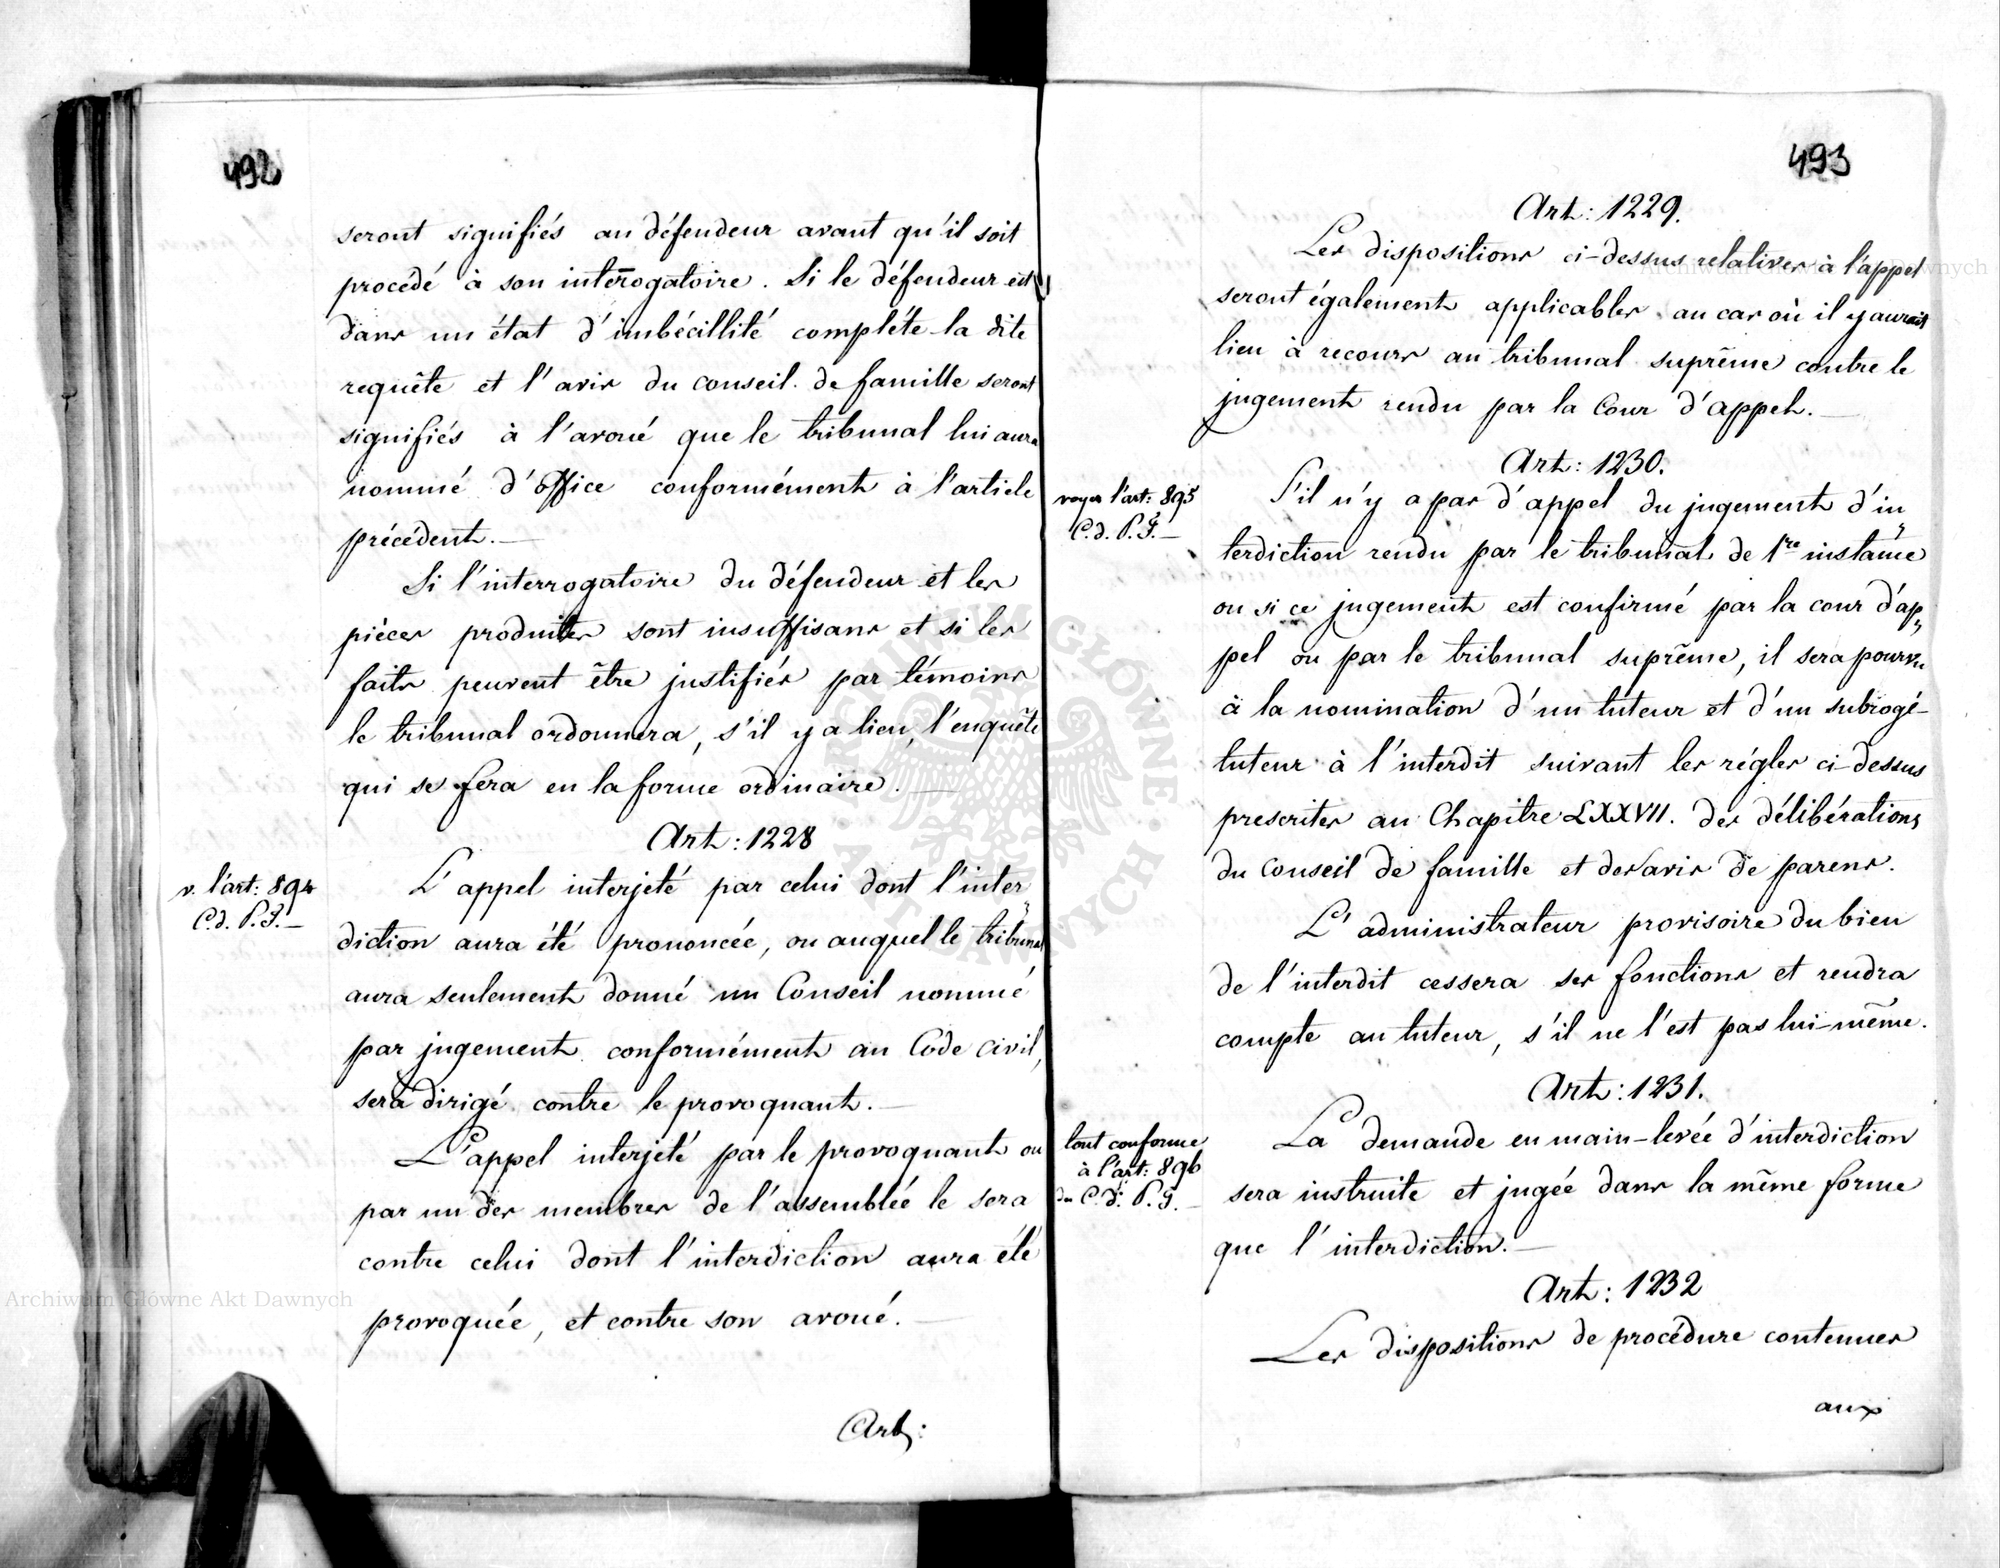 492
seront signifiés au défendeur avant qu'il soit
procédé à son interogatoire. Si le défendeur est
dans un état d'imbécillité complète la dite
requête et l'avis du conseil de famille seront
signifiés à l'avoué que le tribunal lui aura
nommé d'office conformément à l'article
précédent.—
Si l'interrogatoire du défendeur et les
pièces produites sont insuffisans et si les
faits peuvent être justifiés par témoins
le tribunal ordonnera, s'il y a lieu, l'enquête
qui se fera en la forme ordinaire.—
Art: 1228
v. l'art: 894
C. d. P. F.—
L'appel interjeté par celui dont l'inter„
diction aura été prononcée, ou auquel le tribunal
aura seulement donné un Conseil nommé
par jugement conformément au Code civil,
sera dirigé contre le provoquant.—
L'appel interjeté par le provoquant ou
par un des membres de l'assemblée le sera
contre celui dont l'interdiction aura été
provoquée, et contre son avoué.—
Art:
493
Art: 1229.
Les dispositions ci-dessus relatives à l'appel
seront également applicables au cas où il y aurait
lieu à recours au tribunal suprême contre le
jugement rendu par la Cour d'appel.—
Art: 1230.
voyez l'art: 895
C. d. P. F.—
S'il n'y a pas d'appel du jugement d'in„
terdiction rendu par le tribunal de 1re instance
ou si ce jugement est confirmé par la cour d'ap„
pel ou par le tribunal suprême, il sera pourvu
à la nomination d'un tuteur et d'un subrogé-
tuteur à l'interdit suivant les régles ci-dessus
prescrites au Chapitre LXXVII. des délibérations
du conseil de famille et des avis de parens.
L'administrateur provisoire du bien
de l'interdit cessera ses fonctions et rendra
compte au tuteur, s'il ne l'est pas lui-même.
Art: 1231.
tout conforme
à l'art: 896
du C. d. P. F.—
La demande en main-levée d'interdiction
sera instruite et jugée dans la même forme
que l'interdiction.—
Art: 1232
Les dispositions de procédure contenues
aux
Archiwum Główne Akt Dawnych
ARCHIWUM GŁÓWNE AKT DAWNYCH